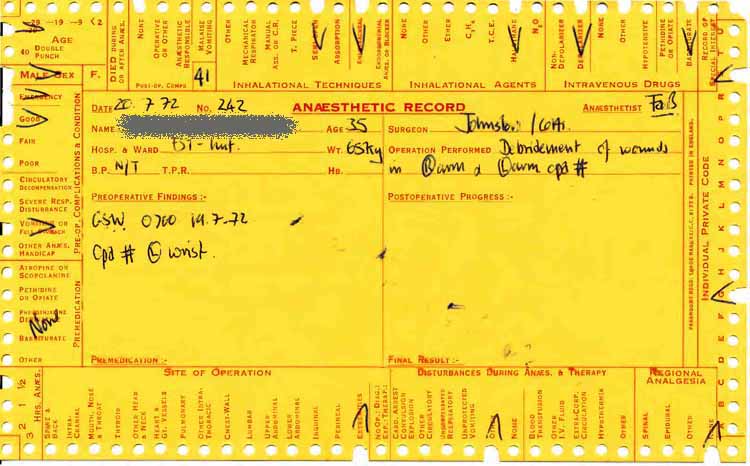 -29 -19 -9 ( 2
AGE
40 DOUBLE PUNCH
MALE SEX F.
DIED DURING OR AFTER ANÆS.
NONE
OPERATIVE OR OTHER
ANÆSTHETIC RESPONSIBLE
MALAISE VOMITING
OTHER
POST-OP. COMPS
41
MECHANICAL RESPIRATOR
MANUAL ASS. OR C.R.
T. PIECE
ABSORPTION
INHALATIONAL TECHNIQUES
NONE
OTHER
ETHER
C₃H₆
T.C.E.
N₂O
INHALATIONAL AGENTS
NON-DEPOLARIZER
DEPOLARISER
OTHER
HYPOTENSIVE
PETHIDINE OR OPIATE
BARBITURATE
INTRAVENOUS DRUGS
RECORD OF SPECIAL INTEREST
DATE 20.7.72 No. 242 ANÆSTHETIC RECORD ANÆSTHETIST
NAME AGE 35 SURGEON
HOSP. & WARD WT. 65kg OPERATION PERFORMED Debridement of wounds
B.P. N/T T.P.R. HB. in (R) arm & (L) arm cpd #
PREOPERATIVE FINDINGS :- POSTOPERATIVE PROGRESS :-
GSW 0700 19.7.72
Cpd # (L) wrist.
PREMEDICATION :- FINAL RESULT :-
EMERGENCY
GOOD
FAIR
POOR
CIRCULATORY DECOMPENSATION
SEVERE RESP. DISTURBANCE
VOMITING OR FULL STOMACH
OTHER ANÆS. HANDICAP
PRE-OP. COMPLICATIONS & CONDITION
ATROPINE OR SCOPOLAMINE
PETHIDINE OR OPIATE
None
BARBITURATE
OTHER
PREMEDICATION
INDIVIDUAL PRIVATE CODE
A B C D E F G H J K L M N O P R
3 2 1 ½
HRS. ANÆS.
SITE OF OPERATION
SPINE & BACK
INTRA CRANIAL
MOUTH, NOSE & THROAT
THYROID
OTHER HEAD & NECK
HEART & GT. VESSELS
PULMONARY
OTHER INTRA-THORACIC
CHEST-WALL
LUMBAR
UPPER ABDOMINAL
LOWER ABDOMINAL
INGUINAL
PERINEAL
EXTREMITIES
DISTURBANCES DURING ANÆS. & THERAPY
CARD. ARREST CONVULSION EXPLOSION
OTHER CIRCULATORY
UNANTICIPATED RESPIRATORY
UNPROVOKED VOMITING
OTHER
NONE
BLOOD TRANSFUSION
OTHER I.V. FLUID
EXTRA-CORP. CIRCULATION
HYPOTHERMIA
OTHER
REGIONAL ANALGESIA
SPINAL
EPIDURAL
OTHER